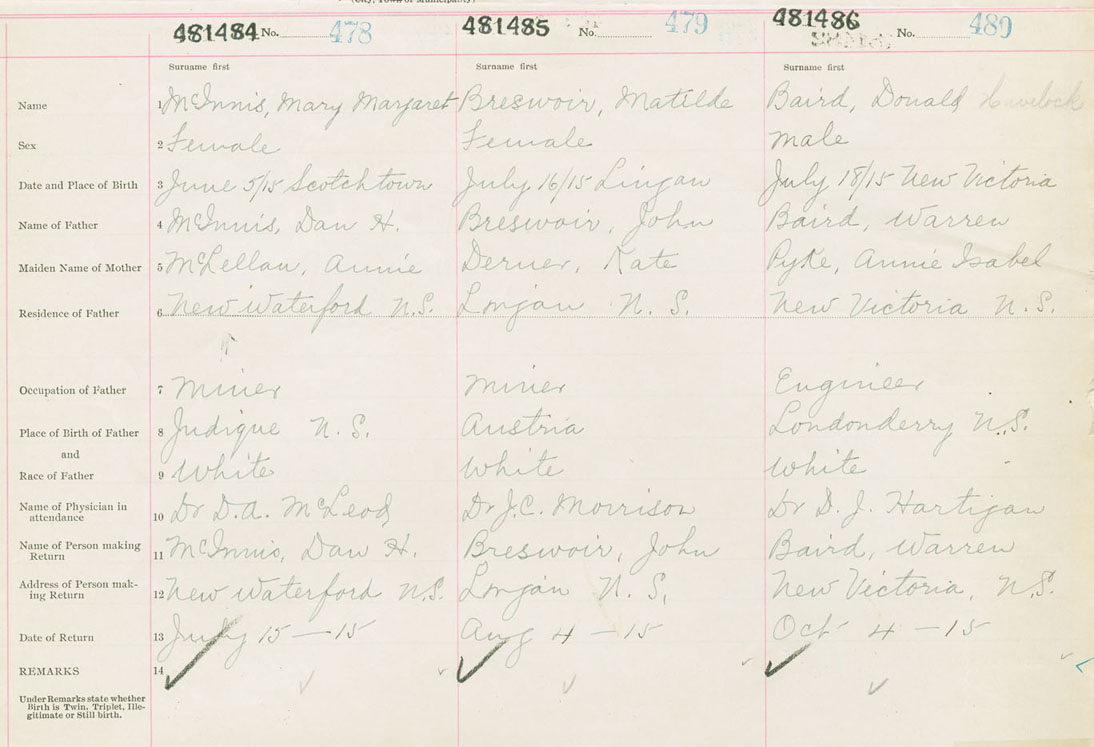 (City, Town or Municipality)
481484 No. 478 481485 No. 479 481486 No. 480
Surname first Surname first Surname first
Name 1 McInnis, Mary Margaret Breswoir, Matilde Baird, Donald Havelock
Sex 2 Female Female Male
Date and Place of Birth 3 June 5/15 Scotchtown July 16/15 Lingan July 18/15 New Victoria
Name of Father 4 McInnis, Dan H. Breswoir, John Baird, Warren
Maiden Name of Mother 5 McLellan, Annie Derner, Kate Pyke, Annie Isabel
Residence of Father 6 New Waterford N.S. Longan N. S. New Victoria N. S.
Occupation of Father 7 Miner Miner Engineer
Place of Birth of Father 8 Judique N. S. Austria Londonderry N.S.
and
Race of Father 9 White White White
Name of Physician in
attendance 10 Dr D.A. McLeod Dr J.C. Morrison Dr D. J. Hartigan
Name of Person making
Return 11 McInnis, Dan H. Breswoir, John Baird, Warren
Address of Person mak-
ing Return 12 New Waterford N.S. Longan N. S. New Victoria, N.S.
Date of Return 13 July 15 — 15 Aug 4 — 15 Oct 4 — 15
REMARKS 14
Under Remarks state whether
Birth is Twin, Triplet, Ille-
gitimate or Still birth.